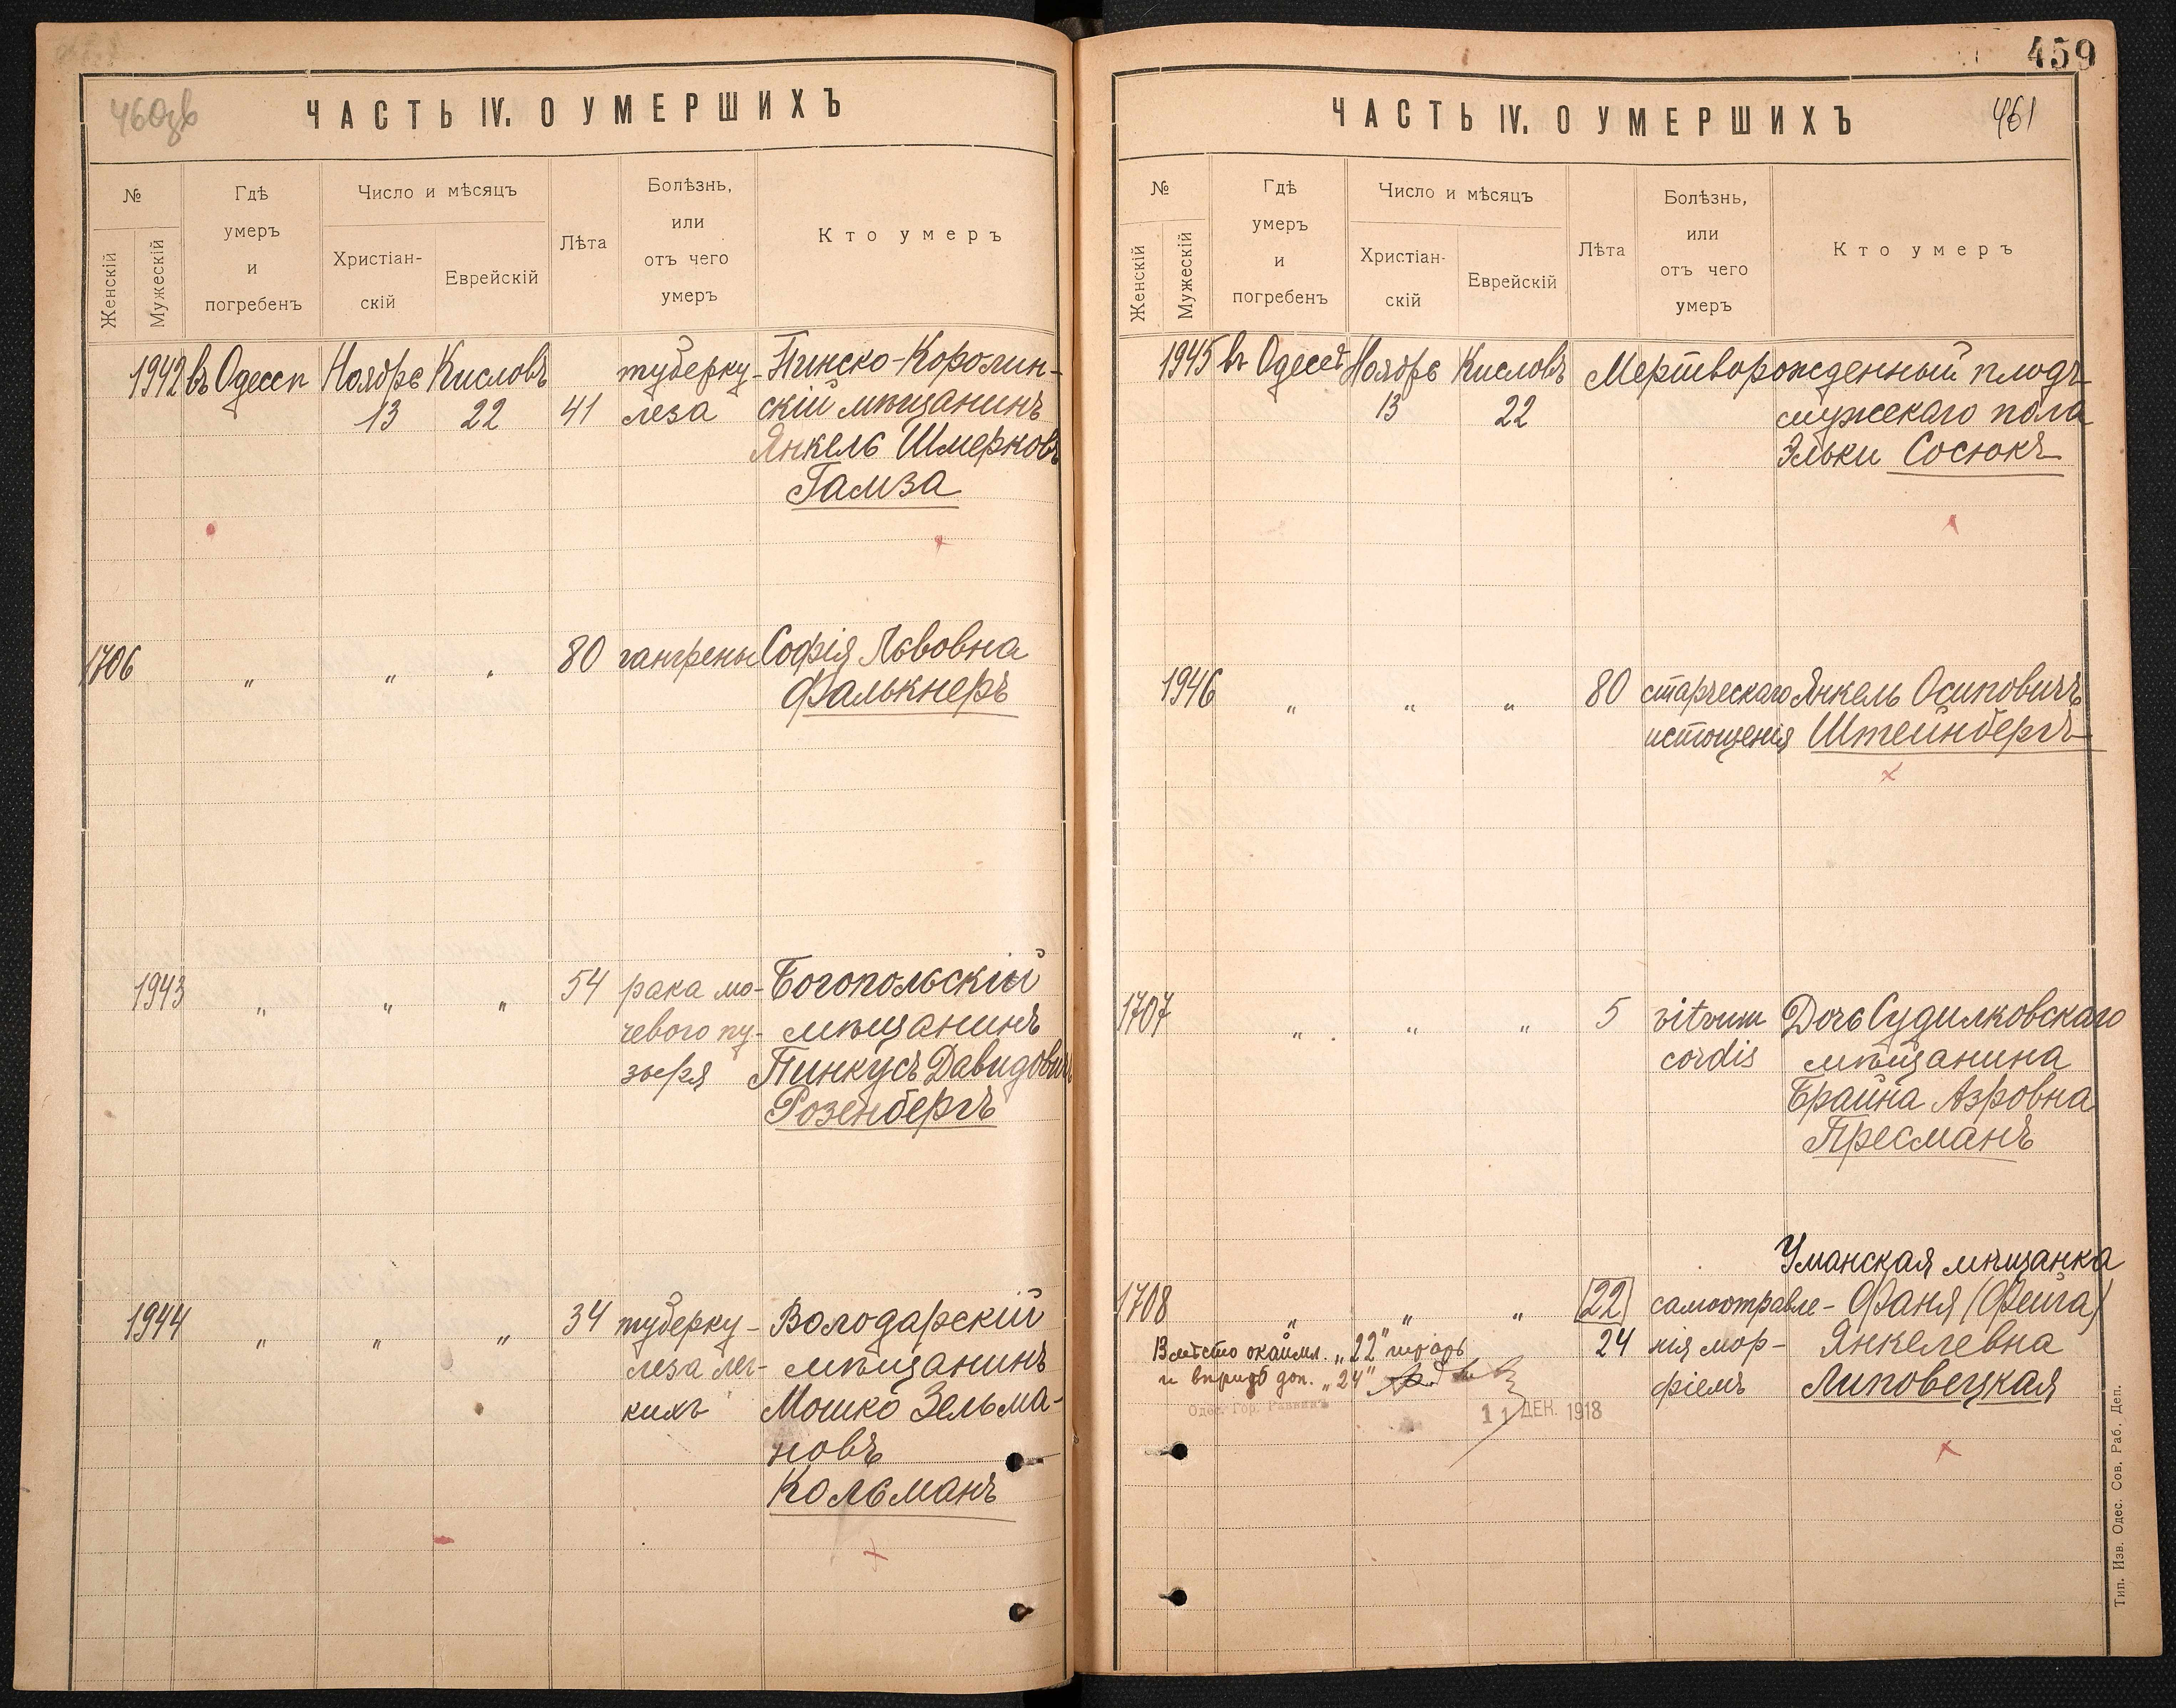 460зв
ЧАСТЬ IV. О УМЕРШИХЪ
№
Женскій
Мужескій
Гдѣ
умеръ
и
погребенъ
Число и мѣсяцъ
Христіан-
скій
Еврейскій
Лѣта
Болѣзнь,
или
отъ чего
умеръ
Кто умеръ
1942 въ Одессѣ Ноября Кисловъ туберку- Пинско-Королин-
13 22 41 леза скій мѣщанинъ
Янкель Шмерковъ
Гамза
1706 " " " 80 гангрены Софія Львовна
Фалькнеръ
1943 " " " 54 рака мо- Богопольскій
чевого пу- мѣщанинъ
зыря Пинкусъ Давидовичъ
Розенбергъ
1944 " " " 34 туберку- Володарскій
леза лег- мѣщанинъ
кихъ Мошко Зельма-
новъ
Кольманъ
459
ЧАСТЬ IV. О УМЕРШИХЪ
461
№
Женскій
Мужескій
Гдѣ
умеръ
и
погребенъ
Число и мѣсяцъ
Христіан-
скій
Еврейскій
Лѣта
Болѣзнь,
или
отъ чего
умеръ
Кто умеръ
1945 въ Одессѣ Ноября Кисловъ Мертворожденный плодъ
13 22 мужскаго пола
Эльки Сосюкъ
1946 " " " 80 старческаго Янкель Осиповичъ
истощенія Штейнбергъ
1707 " " " 5 vitrum Дочь Судилковскаго
cordis мѣщанина
Брайна Азровна
Пресманъ
Уманская мѣщанка
1708 " " " 22 самоотравле- Фаня (Фейга)
Вмѣсто окаймл. "22" 24 нія мор- Янкелевна
и доп. "24" фіемъ Липовецкая
Одес. Гор. Раввинъ
11 ДЕК. 1918
Тип. Изв. Одес. Сов. Раб. Деп.